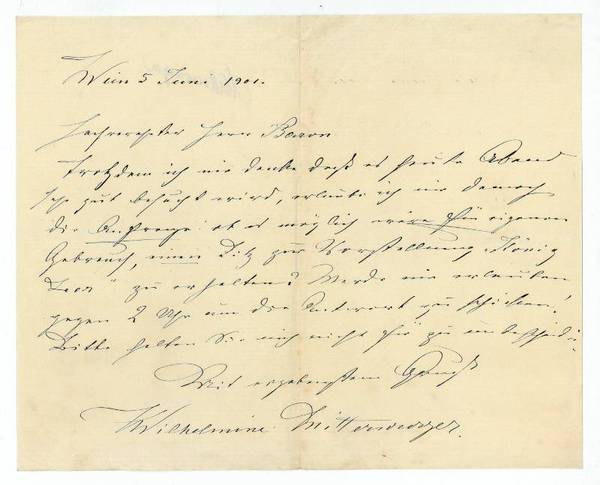 Wien 5 Juni 1901.
Hochverehrter Herr Baron
Trotzdem ich mir denke daß es heute Abend
sehr gut besucht wird, erlaube ich mir dennoch
die Anfrage ob es möglich wäre für eigenen
Gebrauch, einen Sitz zur Vorstellung „König
Lear“ zu erhalten? Werde mir erlauben
gegen 2 Uhr um die Antwort zu schicken!
Bitte halten Sie mich nicht für zu unbescheiden
Mit ergebenstem Gruß
Wilhelmine Mitterwurzer.